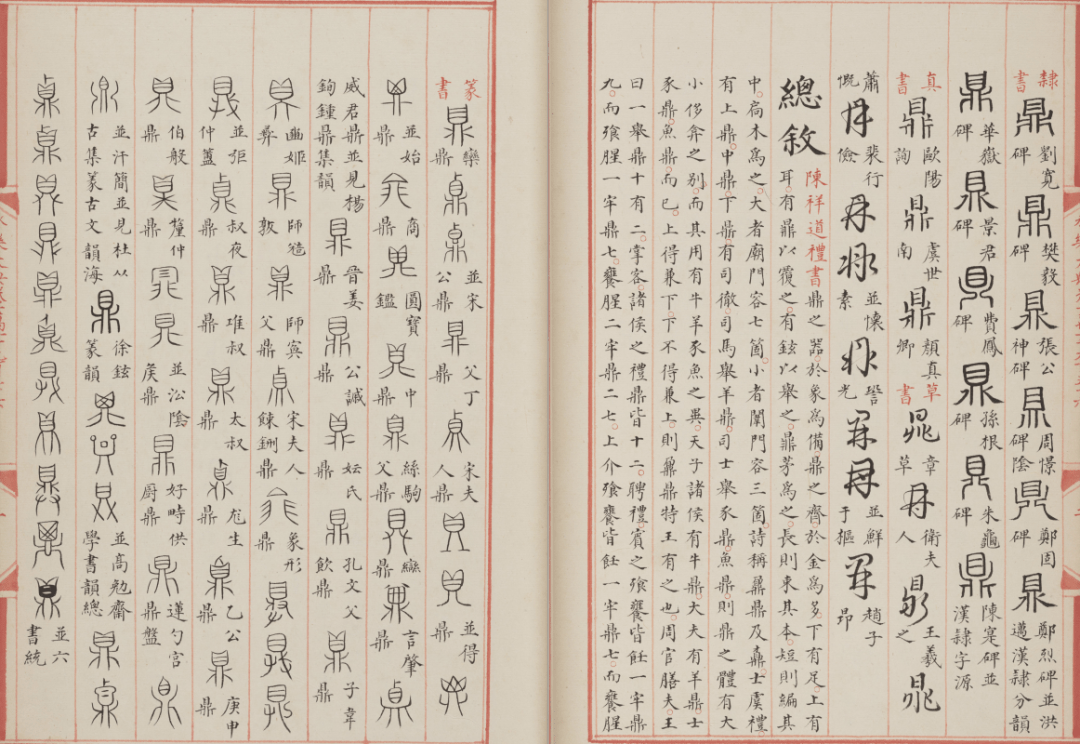 隸書 鼎 劉寬碑 鼎 樊毅碑 鼎 張公神碑 鼎 周憬碑陰 鼎 鄭固碑 鼎 鄭烈碑並洪邁漢隸分韻
鼎 華嶽碑 鼎 景君碑 鼎 費鳳碑 鼎 孫根碑 鼎 朱龜碑 鼎 陳寔碑並漢隸字源
真書 鼎 歐陽詢 鼎 虞世南 鼎 顏真卿 草書 鼎 章草 鼎 衛夫人 鼎 王羲之 鼎
蕭慨 鼎 裴行儉 鼎 鼎 並懷素 鼎 詧光 鼎 鼎 並鮮于樞 鼎 趙子昂
總敘 陳祥道禮書鼎之器。於象為備鼎之齊於金為多。下有足。上有
耳。有鼎以覆之。有鉉以舉之。鼎茅為之。長則束其本。短則編其
中。扃木為之。大者廟門容七箇。小者闈門容三箇。詩稱鼐鼎及鼒。士虞禮
有上鼎。中鼎。下鼎。有司徹。司馬舉羊鼎。司士舉豕鼎。魚鼎。則鼎之體有大
小侈弇之别。而其用有牛羊豕魚之異。天子諸侯有牛鼎。大夫有羊鼎士
豕鼎。魚鼎。而已。上得兼下。下不得兼上。則鼐鼎特王有之也。周官膳夫。王
曰一舉鼎十有二。掌客。諸侯之禮鼎皆十二。聘禮。賓之飧饔皆飪一牢鼎
九。而飧腥一牢鼎七。饔腥二牢鼎二七。上介飧饔皆飪一牢鼎七。而饔腥
篆書 鼎 欒鼎 鼎 鼎 並宋公鼎 鼎 父丁鼎 鼎 宋夫人鼎 鼎 鼎 並得鼎 鼎
鼎 並始鼎 鼎 商 鼎 圓寶鑑 鼎 中 鼎 絲駒父鼎 鼎 鼎 鼎 言肇鼎 鼎
威君鼎並見楊鉤鍾鼎集韻 鼎 晉姜鼎 鼎 公諴鼎 鼎 妘氏鼎 鼎 孔文父飲鼎 鼎 子韋鼎
鼎 豳姬彝 鼎 師敦 鼎 師寏父鼎 鼎 宋夫人餗鉶鼎 鼎 象形鼎 鼎 鼎 鼎
鼎 並弡仲簠 鼎 叔夜鼎 鼎 堆叔鼎 鼎 太叔鼎 鼎 尨生鼎 鼎 乙公鼎 鼎 庚申鼎
鼎 伯般鼎 鼎 釐仲鼎 鼎 鼎 並汾陰侯鼎 鼎 好畤供厨鼎 鼎 蓮勺宫鼎盤 鼎
鼎 並汗簡並見杜从古集篆古文韻海 鼎 徐鉉篆韻 鼎 鼎 鼎 並高勉齋學書韻總 鼎 鼎
鼎 鼎 鼎 鼎 鼎 鼎 鼎 鼎 鼎 鼎 鼎 並六書統